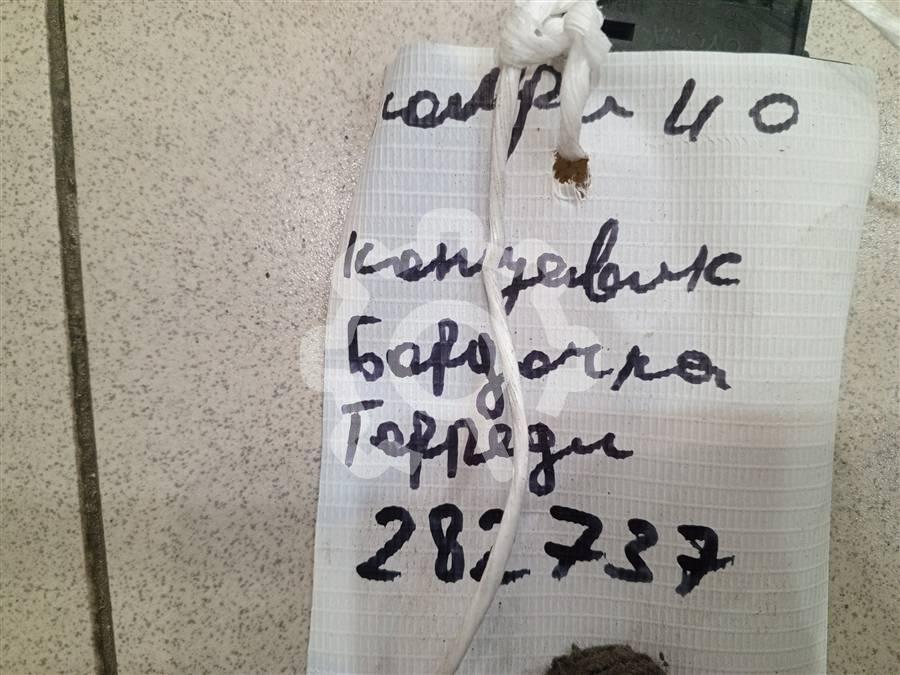 камри 40
концевик
бардачка
Торреди
282737